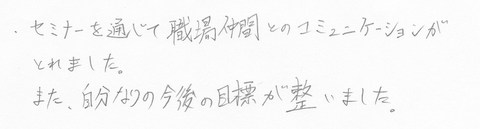 ・セミナーを通じて職場仲間とのコミュニケーションが
とれました。
また、自分なりの今後の目標が整いました。